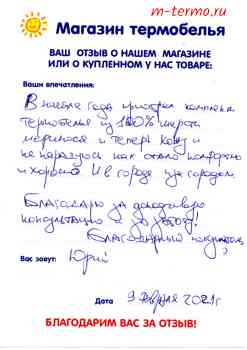 m-termo.ru
Магазин термобелья
ВАШ ОТЗЫВ О НАШЕМ МАГАЗИНЕ
ИЛИ О КУПЛЕННОМ У НАС ТОВАРЕ:
Ваши впечатления:
В начале года приобрел комплект
термобелья из 100% шерсти
мериноса и теперь хожу и
не нарадуюсь как стало комфортно
и хорошо и в городе и за городом.
Благодарю за
консультацию и за заботу!
Благодарный покупатель
Вас зовут: Юрий
Дата 9 февраля 2021г
БЛАГОДАРИМ ВАС ЗА ОТЗЫВ!